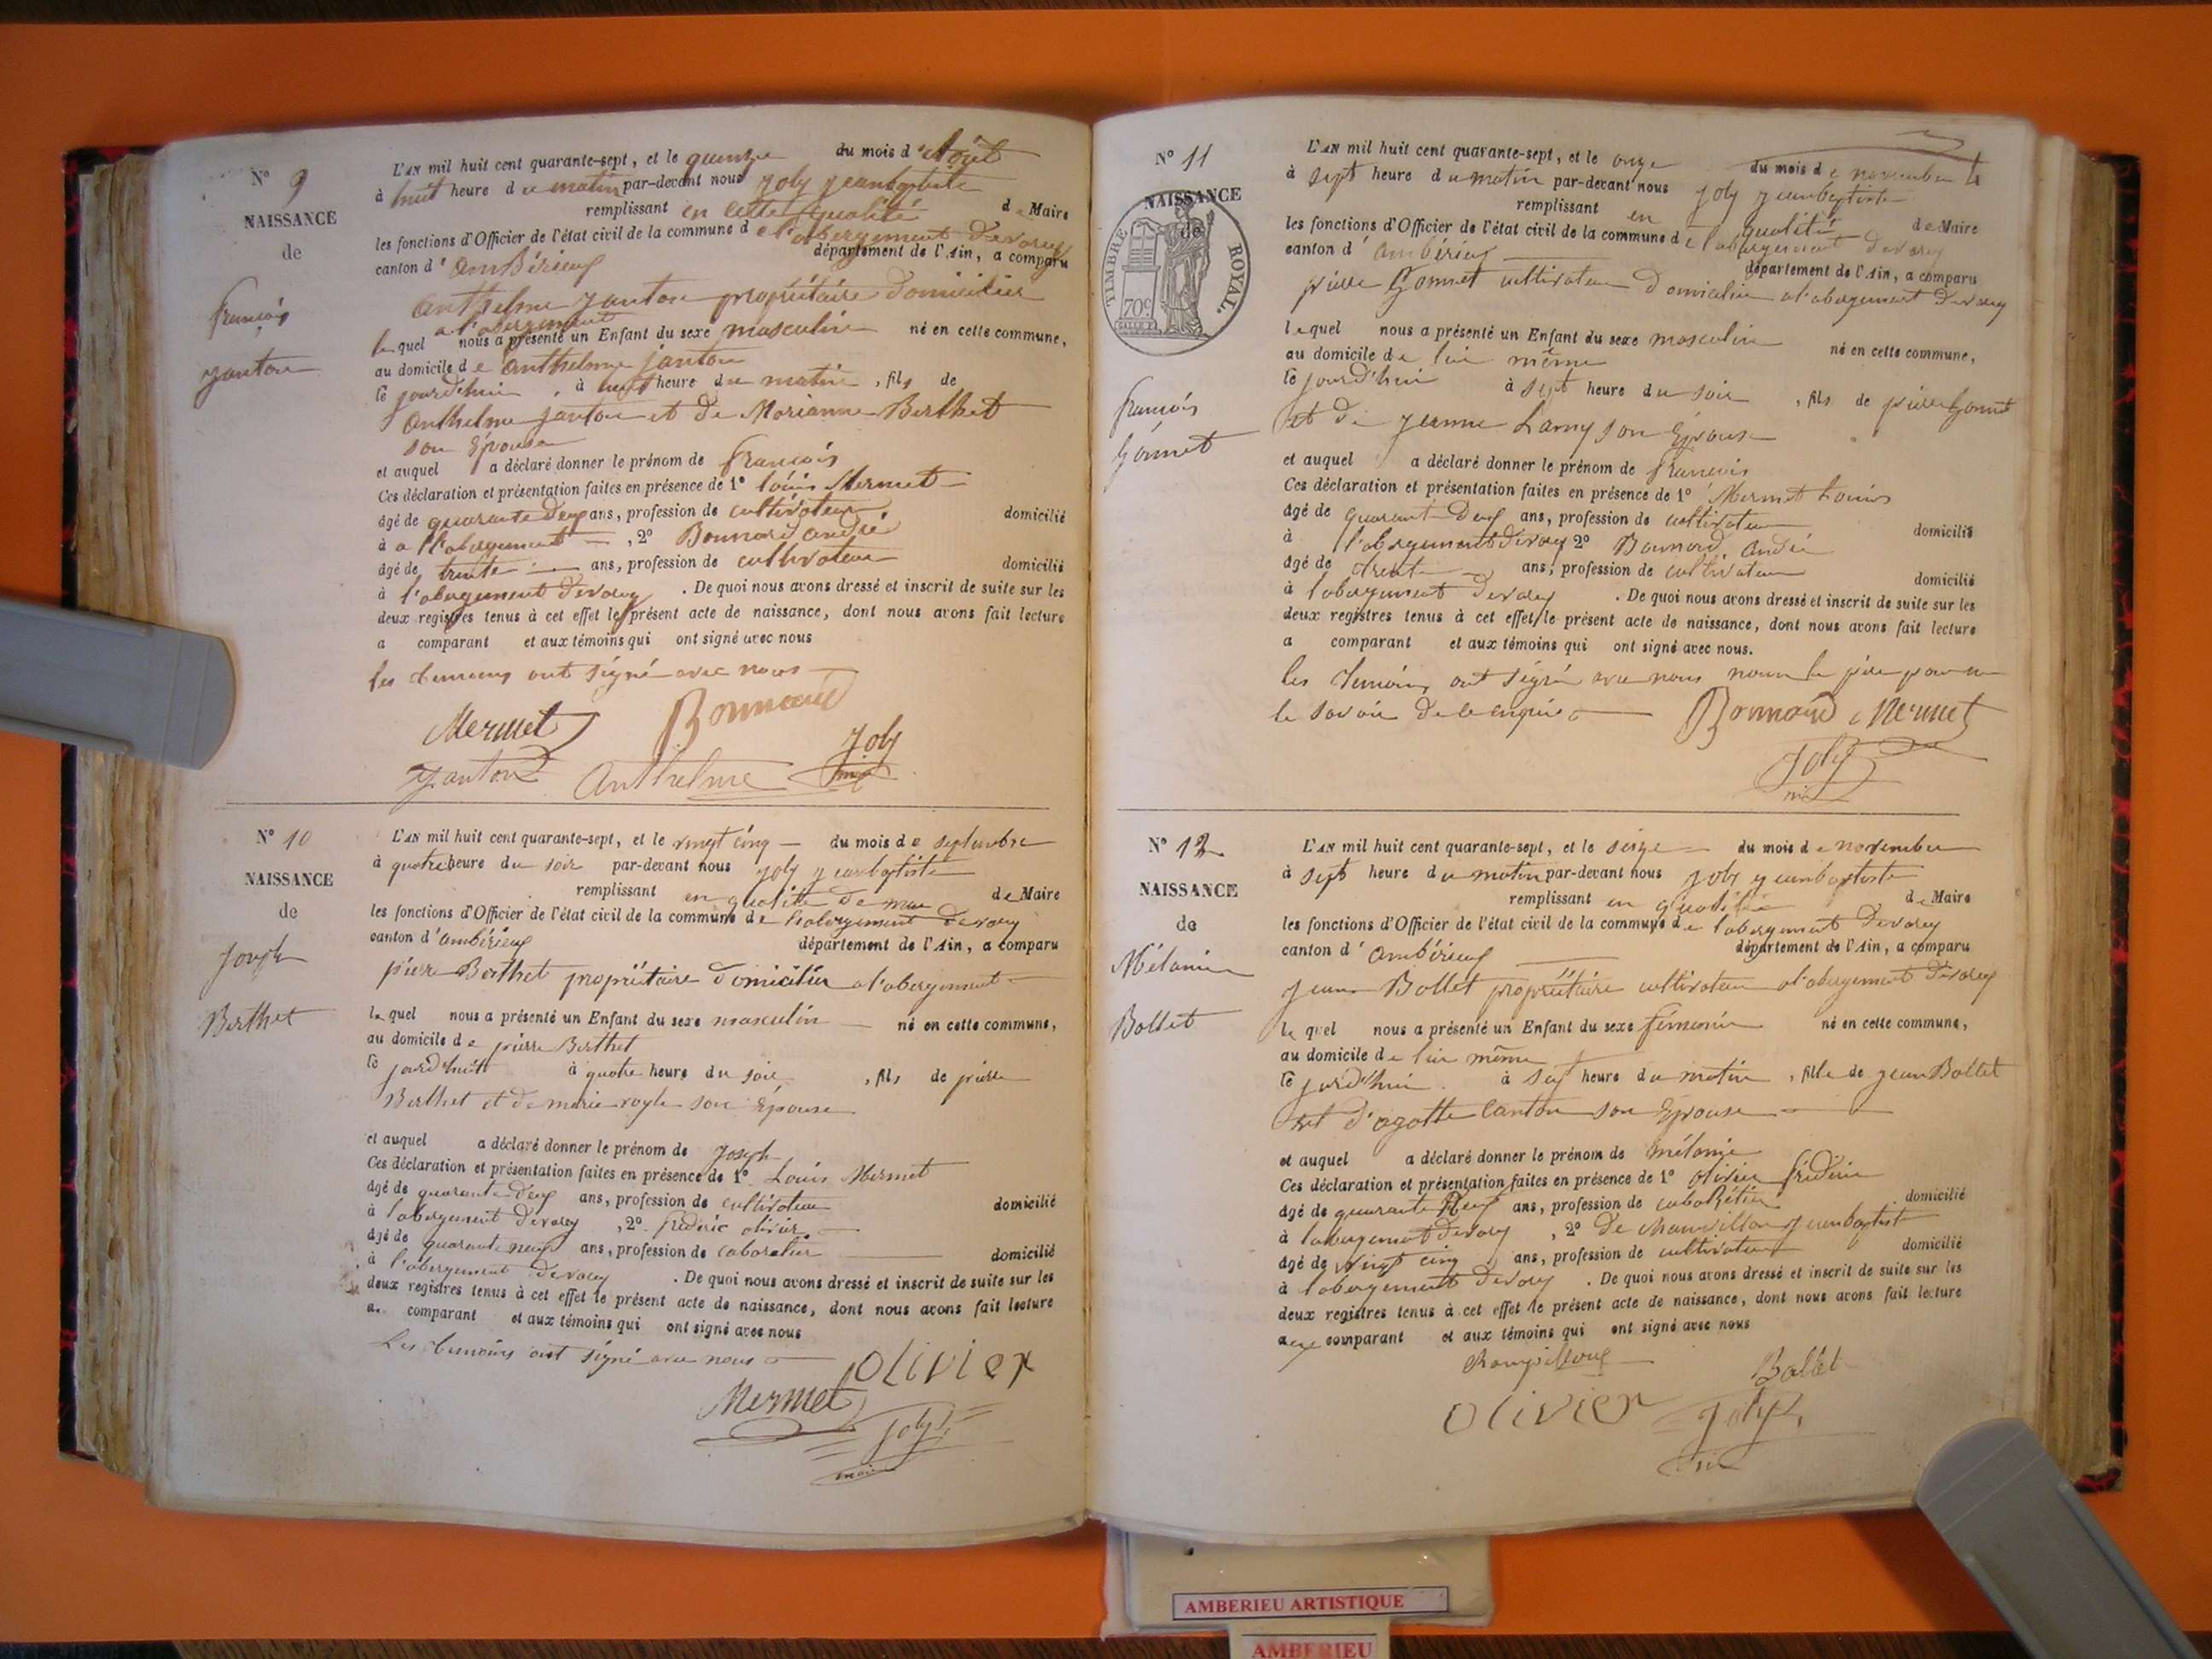 N° 9
NAISSANCE
de
françois
janton
L'AN mil huit cent quarante-sept, et le quinze du mois d'Août
à huit heure du matin par-devant nous joly jeanbaptiste
remplissant en cette qualité de Maire
les fonctions d'Officier de l'état civil de la commune de l'abergement devarey
canton d'Ambérieux département de l'Ain, a comparu
Anthelme janton propriétaire domicilier
a l'abergement
lequel nous a présenté un Enfant du sexe masculin né en cette commune,
au domicile de Anthelme janton
le jourd'hui, à heure du matin, fils de
Anthelme janton et de Marianne Berthet
son Épouse
et auquel a déclaré donner le prénom de françois
Ces déclaration et présentation faites en présence de 1° louis Mermet
âgé de quarante deux ans, profession de cultivateur domicilié
à a l'abergement, 2° Bonnard andré
âgé de trente ans, profession de cultivateur domicilié
à l'abergement devarey. De quoi nous avons dressé et inscrit de suite sur les
deux registres tenus à cet effet le présent acte de naissance, dont nous avons fait lecture
a comparant et aux témoins qui ont signé avec nous
les temoins ont signé avec nous
Mermet Bonnard
janton Anthelme joly
N° 10
NAISSANCE
de
Joseph
Berthet
L'AN mil huit cent quarante-sept, et le vingt cinq du mois de septembre
à quatre heure du soir par-devant nous joly jeanbaptiste
remplissant en qualité de de Maire
les fonctions d'Officier de l'état civil de la commune de l'abergement devarey
canton d'ambérieux département de l'Ain, a comparu
pierre Berthet propriétaire domicilier a l'abergement
lequel nous a présenté un Enfant du sexe masculin né en cette commune,
au domicile de pierre Berthet
le jourd'huit à quatre heure du soir, fils de pierre
Berthet et de marie son Épouse
et auquel a déclaré donner le prénom de joseph
Ces déclaration et présentation faites en présence de 1° Louis Mermet
âgé de quarante deux ans, profession de cultivateur domicilié
à l'abergement devarey, 2° frederic olivier
âgé de quarante neuf ans, profession de cabaretier domicilié
à l'abergement devarey. De quoi nous avons dressé et inscrit de suite sur les
deux registres tenus à cet effet le présent acte de naissance, dont nous avons fait lecture
a comparant et aux témoins qui ont signé avec nous
Les temoins ont signé avec nous
olivier
Mermet
joly
maire
N° 11
NAISSANCE
de
TIMBRE ROYAL.
70c
françois
Gonnet
L'AN mil huit cent quarante-sept, et le onze du mois de november
à sept heure du matin par-devant nous joly jeanbaptiste
remplissant en qualité de Maire
les fonctions d'Officier de l'état civil de la commune de l'abergement devarey
canton d'ambérieux département de l'Ain, a comparu
pierre Gonnet cultivateur domicilier a l'abergement devarey
lequel nous a présenté un Enfant du sexe masculin né en cette commune,
au domicile de lui même
le jourd'hui à sept heure du soir, fils de pierre Gonnet
et de jeanne Lamy son Épouse
et auquel a déclaré donner le prénom de francois
Ces déclaration et présentation faites en présence de 1° Mermet Louis
âgé de quarant deux ans, profession de cultivateur
à l'abergement devarey 2° Bonnard, andré domicilié
âgé de trente ans, profession de cultivateur
à l'abergement devarey. De quoi nous avons dressé et inscrit de suite sur les domicilié
deux registres tenus à cet effet le présent acte de naissance, dont nous avons fait lecture
a comparant et aux témoins qui ont signé avec nous.
les temoins ont signé avec nous le père pour
le savoir de ce enquis
Bonnard Mermet
Joly
N° 12
NAISSANCE
de
Mélanie
Bollet
L'AN mil huit cent quarante-sept, et le seize du mois de november
à sept heure du matin par-devant nous joly jeanbaptiste
remplissant en qualité de Maire
les fonctions d'Officier de l'état civil de la commune de l'abergement devarey
canton d'ambérieux département de l'Ain, a comparu
jean Bollet propriétaire cultivateur a l'abergement devarey
lequel nous a présenté un Enfant du sexe féminin né en cette commune,
au domicile de lui même
le jourd'hui. à six heure du matin, fille de jean Bollet
et d'agatte Canton son Épouse
et auquel a déclaré donner le prénom de mélanie
Ces déclaration et présentation faites en présence de 1° olivier fréderic
âgé de quarante neuf ans, profession de cabarétier domicilié
à l'abergement devarey, 2° jeanbaptiste
âgé de vingt cinq ans, profession de cultivateur domicilié
à l'abergement devarey. De quoi nous avons dressé et inscrit de suite sur les
deux registres tenus à cet effet le présent acte de naissance, dont nous avons fait lecture
comparant et aux témoins qui ont signé avec nous
Bollet
olivier joly
AMBERIEU ARTISTIQUE
AMBERIEU